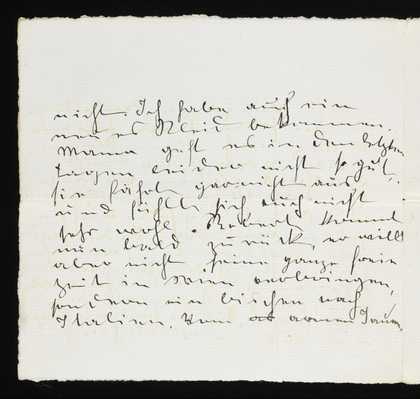 nicht. Ich habe auch ein
neues Kleid bekommen.
Mama geht es in den letzten
Tagen leider nicht so gut,
sie fährt garnicht aus
und fühlt sich auch nicht
sehr wohl. Robert kommt
nun bald zurück, er will
aber nicht seine ganze freie
Zeit in Wien verbringen,
sondern ein bischen nach
Italien. Nun